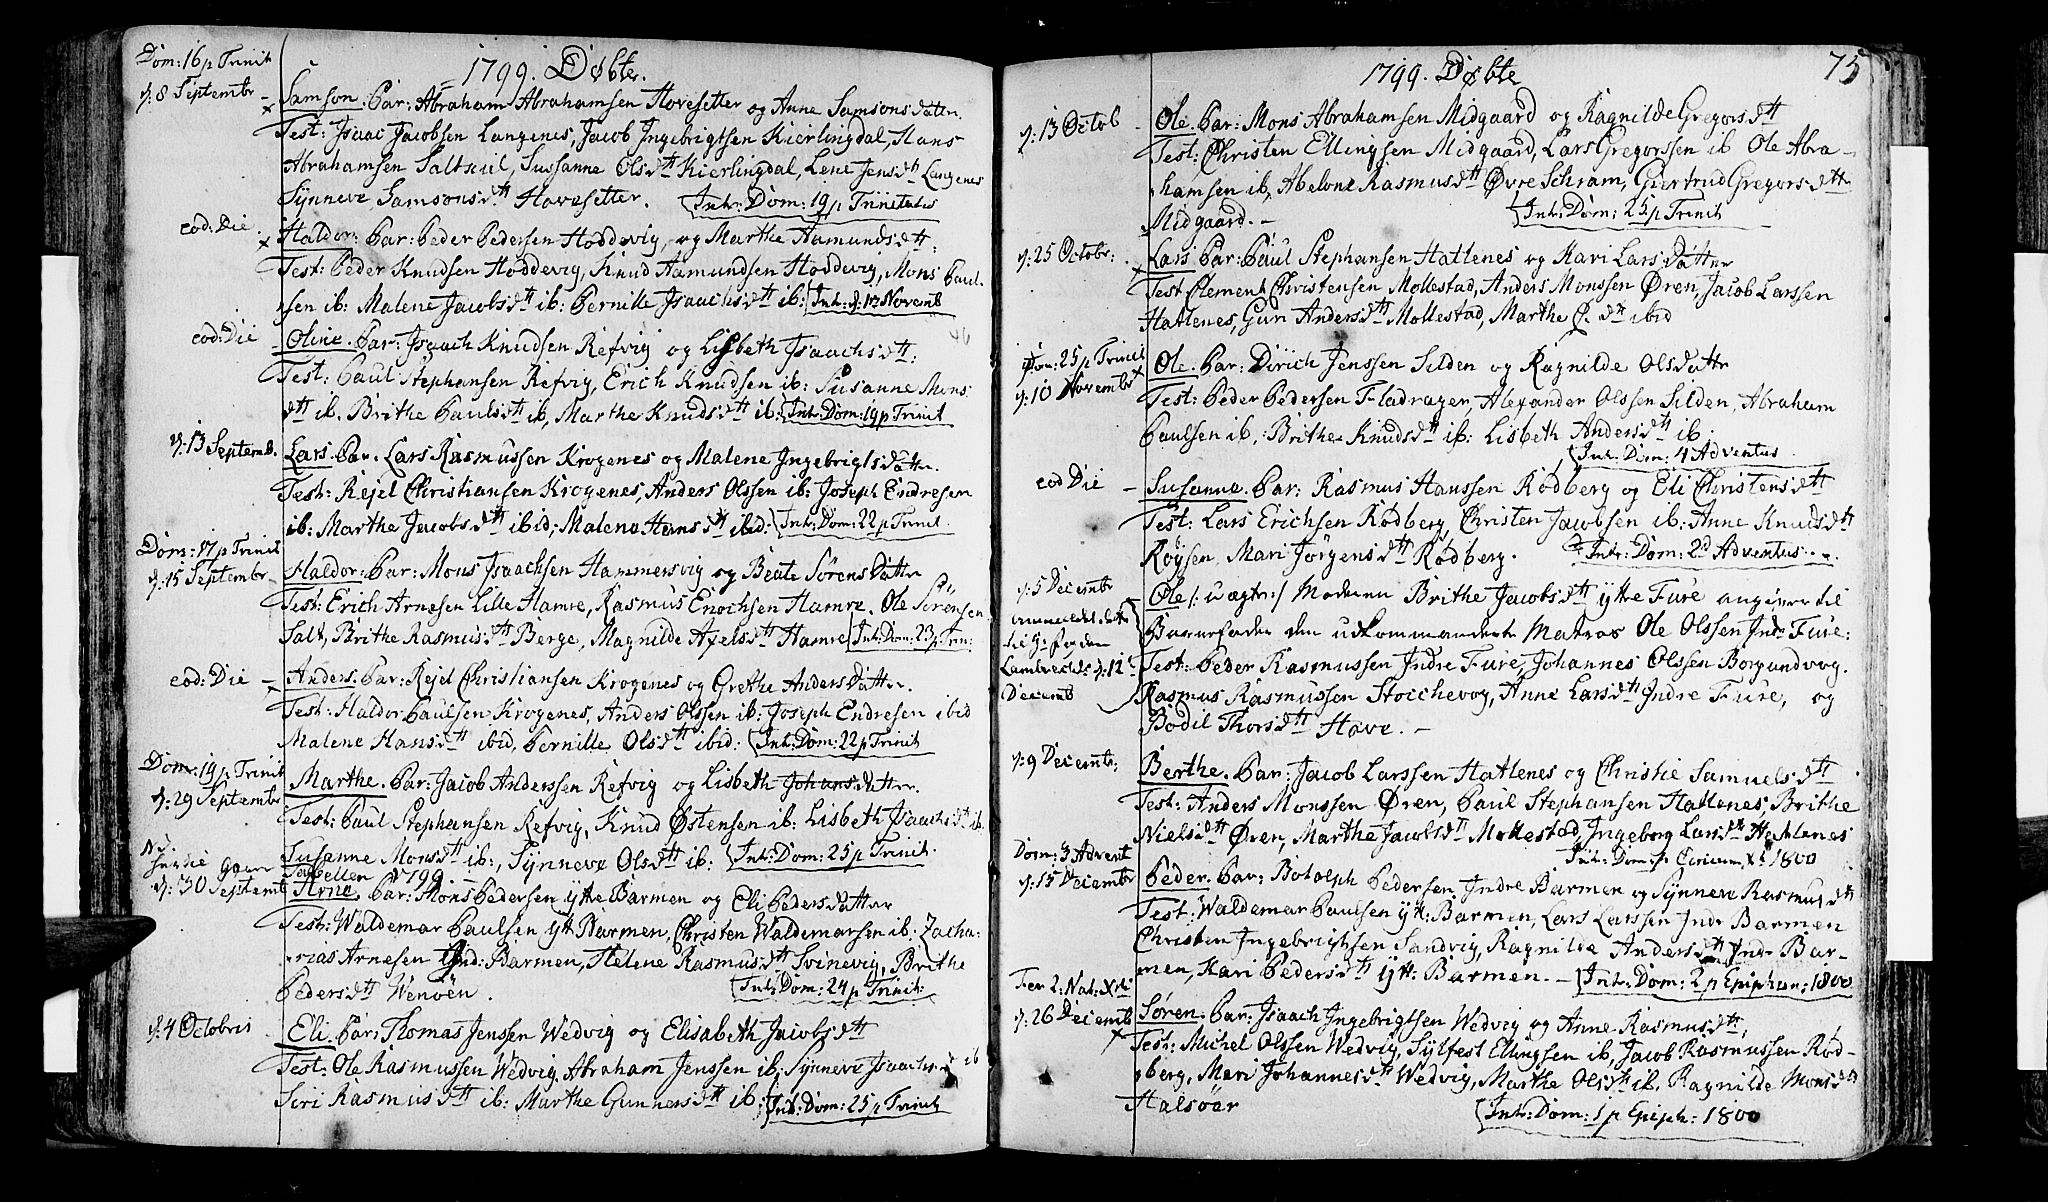 1799. Døbte.
Dom: 16 p Trinit
d: 8 Septembr
Samson. Par: Abraham Abrahamsen Hovesetter og Anne Samsons datter.
Test: Isaac Jacobsen Langenes, Jacob Ingebrigtsen Kierlingdal, Hans
Abrahamsen Saltsuil, Sussanne Olsdtt Kierlingdal, Lene Jensdtt Langenes
Synneve Samsonsdtt Hovesetter. Intr: Dom: 19 p Trinitatis
eod: Die
Haldor: Par: Peder Pedersen Hoddevig, og Marthe Aamundsdtt:
Test: Peder Knudsen Hoddevig, Knud Aamundsen Hoddevig, Mons Paul-
sen ib: Malene Jacobsdtt ib: Pernille Isaachsdtt ib: Intr: d: 17 Novemb
eod: Die
Oline. Par: Isaach Knudsen Refvig og Lisbeth Isaachsdtt:
Test: Paul Stephansen Refvig, Erich Knudsen ib: Susanne Mons
dtt ib. Brithe Paulsdtt ib, Marthe Knudsdtt ib: Intr: Dom: 19 p Trinit
d: 13 Septemb.
Lars. Par. Lars Rasmussen Krogenes og Malene Ingebrigtsdatter.
Test: Rejel Christiansen Krogenes, Anders Olssen ib: Joseph Endresen
ib: Marthe Jacobsdtt ibid; Malena Hansdtt ibid: Intr: Dom: 22 p Trinit.
Dom: 17 p Trinit
d: 15 Septembr
Haldor: Par: Mons Isaachsen Hammersvig og Beate Sørens Datter
Test: Erich Arnesen Lille Hamre, Rasmus Enochsen Hamre. Ole Sørensen
Salt, Brithe Rasmusdtt Berge, Magnilde Axelsdtt Hamre Intr: Dom: 23 p Trin:
eod: Die
Anders. Par: Rejel Christiansen Krogenes og Grethe Anders Datter.
Test: Haldor Paulsen Krogenes, Anders Olssen ib: Joseph Endresen ibid
Malene Hansdtt ibid, Pernille Olsdtt ibid: Intr: Dom: 22 p Trinit
Dom: 19 p Trinit
d: 29 Septembr
Marthe. Par: Jacob Anderssen Refvig og Lisbeth Johansdatter.
Test: Paul Stephansen Refvig, Knud Østensen ib: Lisbeth Isaachsdtt ib.
Susanne Monsdtt ib:, Synneve Olsdtt ib: Intr: Dom: 25 p Trinit.
gaar Tabellen 1799
d: 30 Septemb
Arne. Par: Mons Pedersen ytte Barmen og Eli Pedersdatter
Test: Waldemar Paulsen ytt Barmen, Christen Waldemarsen ib: Zacha-
rias Arnesen Ind: Barmen, Helene Rasmusdtt Svinevig, Brithe
Pedersdtt Wenøen. Intr: Dom: 24 p Trinit:
d: 4 Octobris
Eli. Par: Thomas Jenssen Wedvig og Elisabeth Jacobsdtt
Test: Ole Rasmussen Wedvig, Abraham Jenssen ib: Synneve Isaachs ib
Siri Rasmusdtt ib: Marthe Gunnersdtt ib: Intr: Dom: 25 p Trinit
1799. Døbte
75
d: 13 Octob
Ole. Par: Mons Abrahamsen Midgaard og Ragnilde Gregorsdtt
Test: Christen Ellingsen Midgaard, Lars Gregorssen ib Ole Abra-
hamsen ib, Abelone Rasmusdtt Øvre Schram, Giertrud Gregorsdtt
Midgaard.- Intr: Dom: 25 p Trinit
d: 25 Octobr:
Lars Par: Paul Stephansen Hatlenes og Kari Lars Datter
Test Clement Christensen Mollestad, Anders Monssen Øren, Jacob Larssen
Hatlenes, Guri Andersdtt Mollestad, Marthe P. dtt ibid
Dom: 25 p Trinit
d: 10 Novembr
Ole. Par: Dirich Jenssen Silden og Ragnilde Olsdatter
Test: Peder Pedersen Fladrager, Alexander Olssen Silden, Abraham
Paulsen ib, Brithe Knudsdtt ib: Lisbeth Andersdtt ib.
Intr: Dom: 4 Adventus
eod Die
Susanne. Par: Rasmus Hanssen Rødberg og Eli Christensdtt
Test: Lars Erichsen Rødberg, Christen Jacobsen ib: Anne Knudsdtt
Røysen, Mari Jørgensdtt Rødberg. Intr: Dom: 2d Adventus
d: 5 Decembr
d: 12
Decemb
Ole /: uægte :/ Moderen Brithe Jacobsdtt ytre Fure angiver til
Barnefader den udkommanderte Matros Ole Olssen Indre Fure:
Test: Peder Rasmussen Indre Fure, Johannes Olssen Borgundvog
Rasmus Rasmussen Stocchevog, Anne Larsdtt Indre Fure, og
Bodil Thorsdtt Hove.-
d: 9 Decembr:
Berthe. Par: Jacob Larssen Hatlenes og Christie Samuelsdtt
Test: Anders Monssen Øren, Paul Stephansen Hatlenes, Brithe
Nielsdtt Øren, Marthe Jacobsdtt Mollestad, Ingeborg Larsdtt Hatlenes
Intr: Dom: p Circum. Xti 1800
Dom: 3 Advent
d: 15 Decembr
Peder. Par: Botolph Pedersen Indre Barmen og Synneve Rasmusdtt
Test: Waldemar Paulsen ytt: Barmen, Lars Larssen Indr Barmen
Christen Ingebrigtsen Sandvig, Ragnilde Andersdtt Indr Bar-
men, Kari Pedersdtt ytt: Barmen.- Intr: Dom: 2 p Epiphan: 1800
Fer 2: Nat: Xti
d: 26 Decemb
Søren. Par: Isaach Ingebrigtsen Wedvig og Anne Rasmusdtt,
Test: Michel Olssen Wedvig, Sylfest Ellingsen ib, Jacob Rasmussen Rød-
berg, Mari Johannesdtt Wedvig, Marthe Olsdtt ib. Ragnilde Monsdtt
Halsøer Intr: Dom: 1 p Epiph: 1800